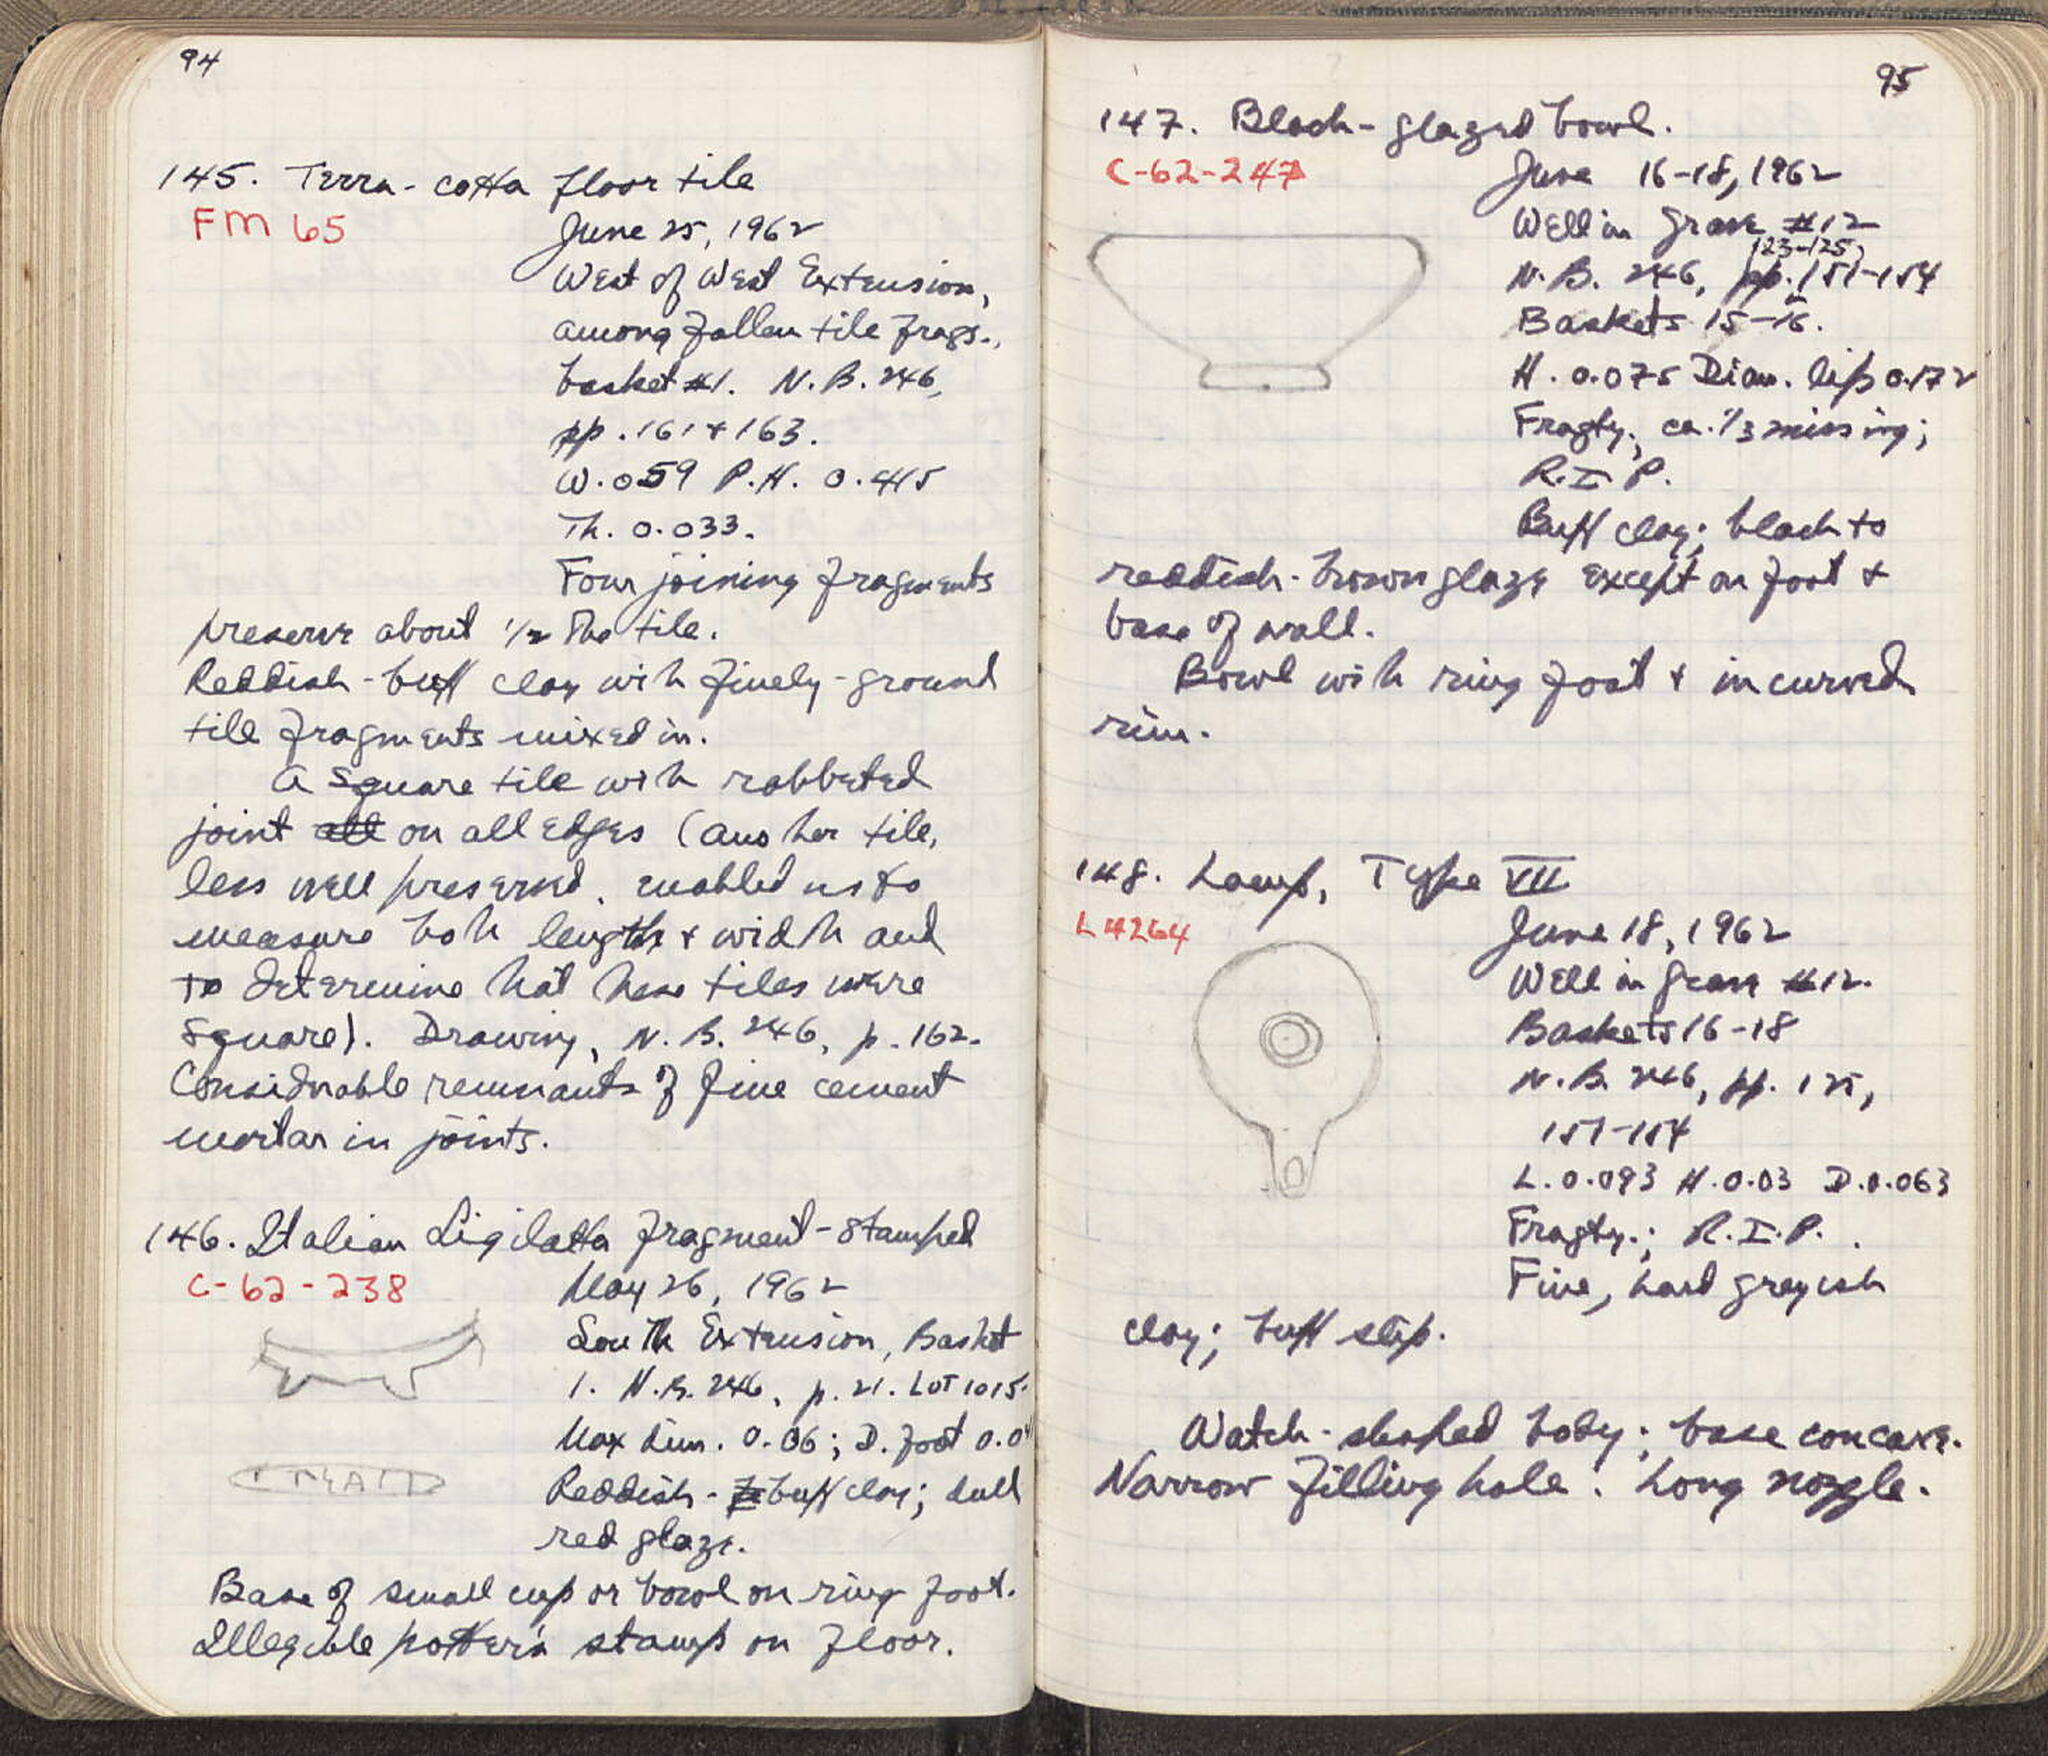 94
145. Terra-cotta floor tile
FM 65
June 25, 1962
West of West Extension,
among fallen tile frags.,
basket #1. N.B. 246,
pp. 161 + 163.
W. 0.59 P.H. 0.445
Th. 0.033.
Four joining fragments
preserve about 1/2 the tile.
Reddish-buff clay with finely-ground
tile fragments mixed in.
A square tile with rabbeted
joint all on all edges (another tile,
less well preserved, enabled us to
measure both length + width and
to determine that these tiles were
square). Drawing, N.B. 246, p. 162.
Considerable remnants of fine cement
mortar in joints.
146. Italian Sigilatta fragment-stamped
C-62-238
May 26, 1962
South Extension, Basket
1. N.B. 246, p. 21. LOT 1015.
Max dim. 0.06; D. foot 0.04
Reddish-buff clay; dull
red glaze.
Base of small cup or bowl on ring foot.
Illegible potter's stamp on floor.
95
147. Black-glazed bowl.
C-62-247
June 16-18, 1962
Well in Grave #12
(123-125)
N.B. 246, pp. 151-154
Baskets 15-16.
H. 0.075 Diam. lip 0.172
Fragty., ca. 1/3 missing;
R.I.P.
Buff clay; black to
reddish-brown glaze except on foot +
base of wall.
Bowl with ring foot + incurved
rim.
148. Lamp, Type VII
L4264
June 18, 1962
Well in Grave #12.
Baskets 16-18
N.B. 246, pp. 125,
151-154
L. 0.093 H. 0.03 D. 0.063
Fragty.; R.I.P.
Fine, hard greyish
clay; buff slip.
Watch-shaped body; base concave.
Narrow filling hole. Long nozzle.